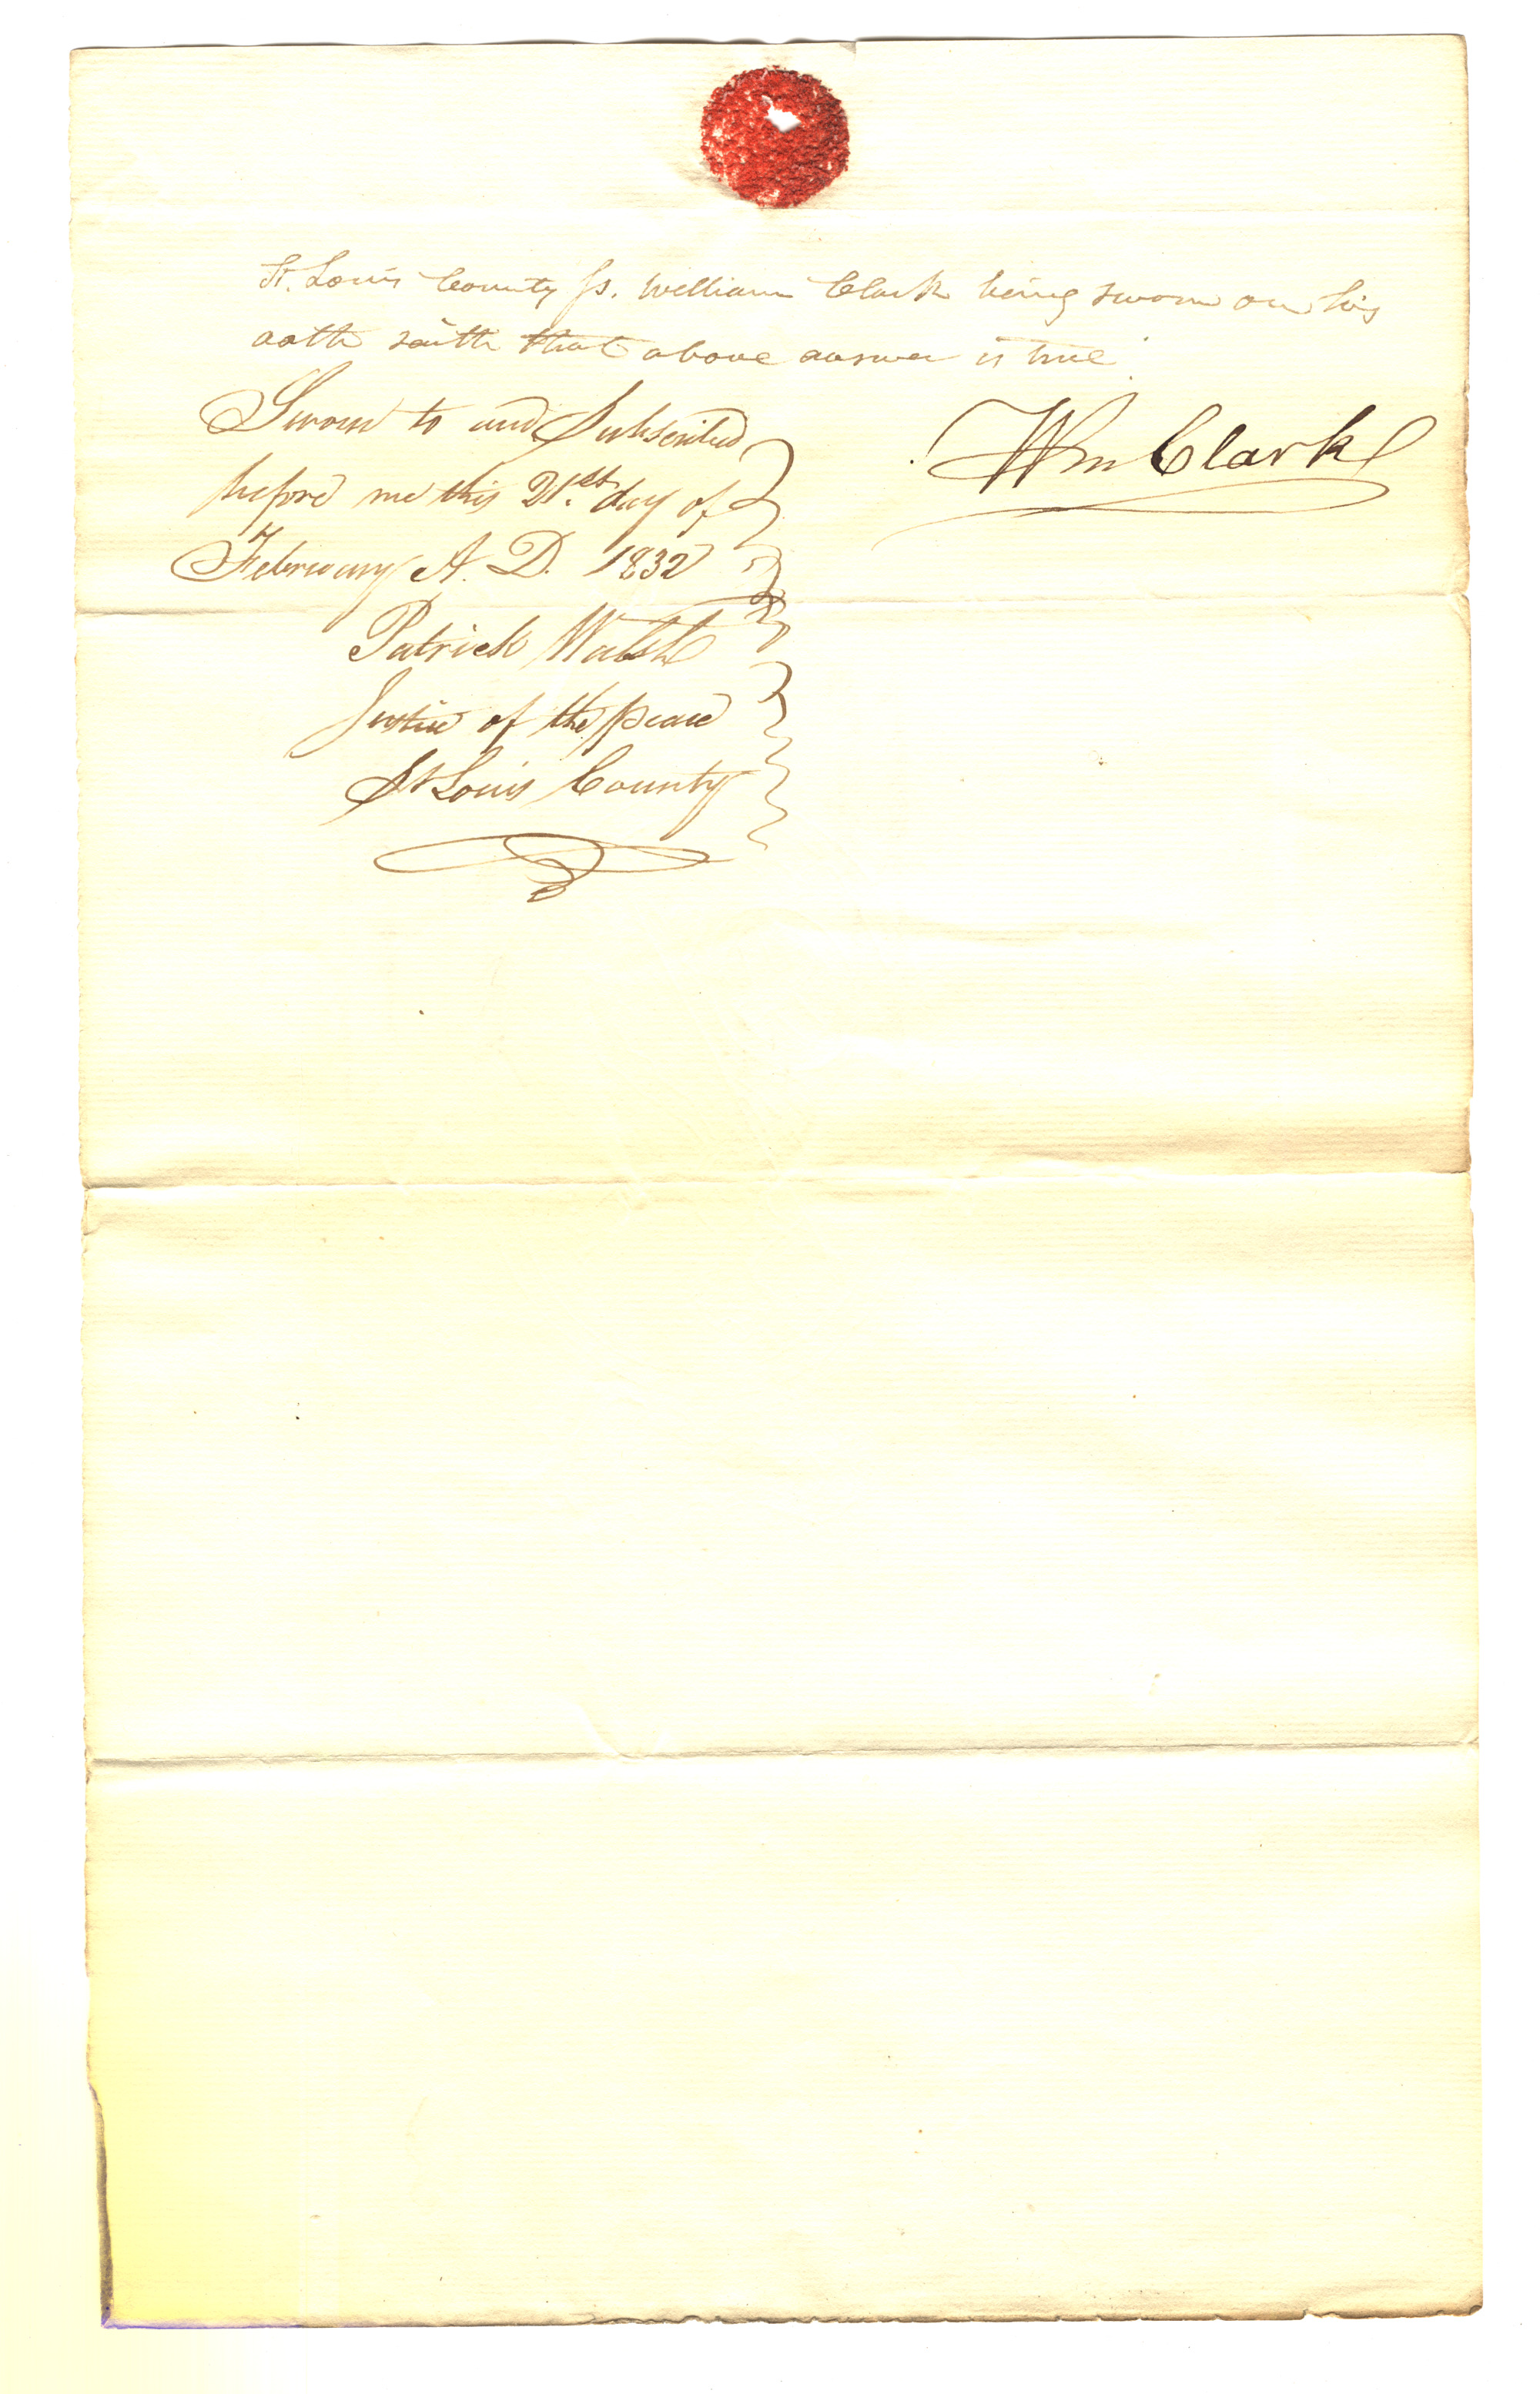 St. Louis County ss. William Clark being sworn on his
oath saith that above answer is true.
Sworn to and Subscribed
before me this 21.st day of
February A. D. 1832
Wm Clark
Patrick Walsh
Justice of the peace
St Louis County